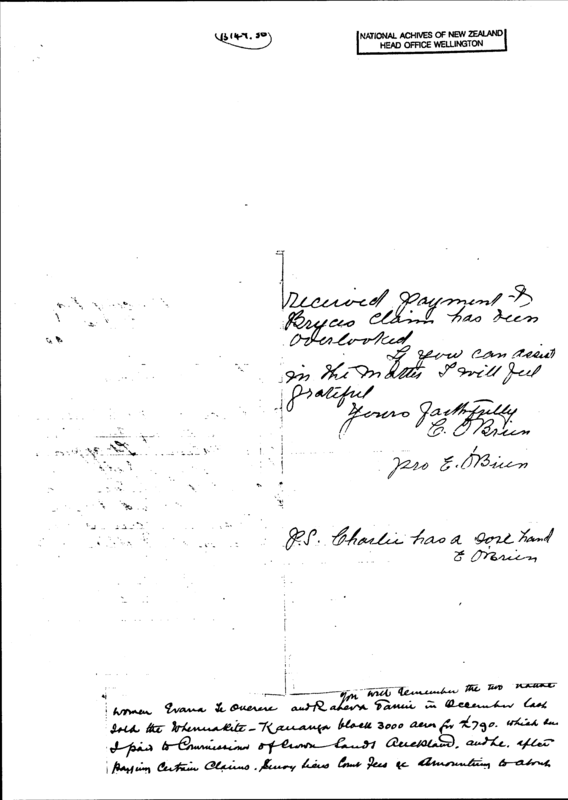 NATIONAL ACHIVES OF NEW ZEALAND
HEAD OFFICE WELLINGTON
received payment &
Bryces claim has been
overlooked
If you can assist
in the matter I will feel
grateful
Yours faithfully
C. O'Brien
pro E. O'Brien
P.S. Charlie has a sore hand
E O'Brien
You will remember the two native
women and in December last
sold the Whenuakite - Kauanga block 3000 acres for £790. which
I paid to Commissioner of Crown Lands Auckland, and he, after
paying certain claims. Survey liens Court Fees &c amounting to about